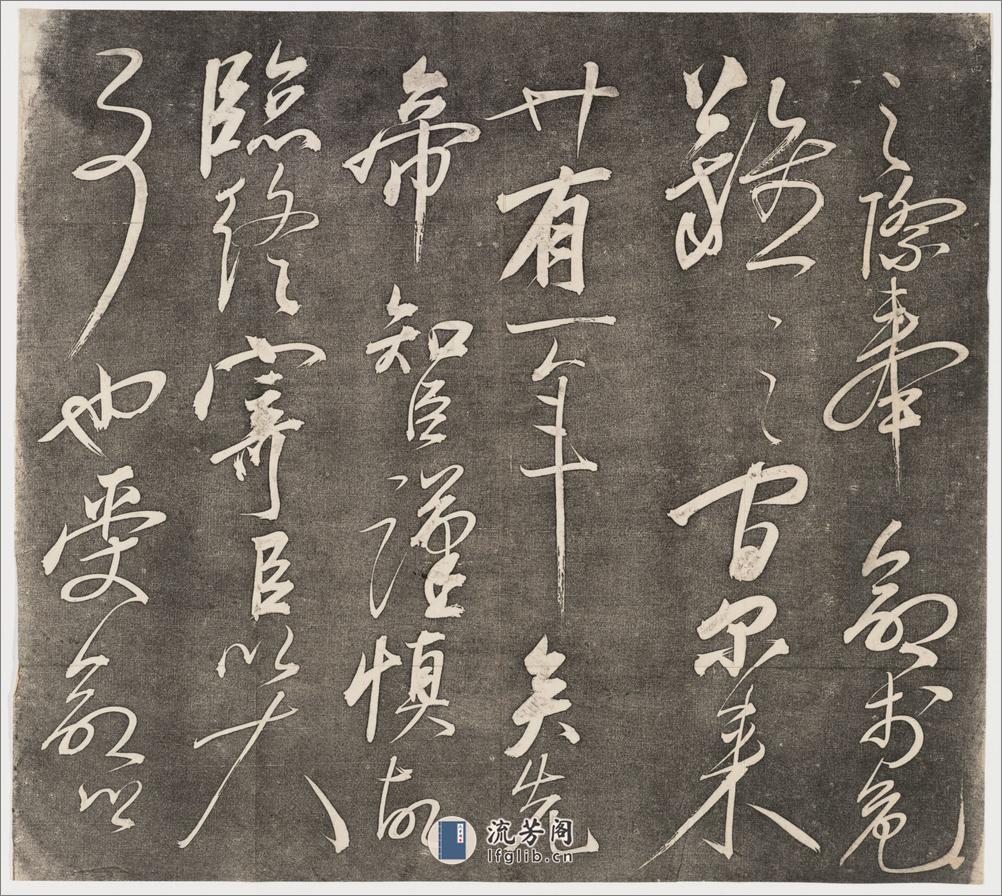 之際奉命於危
難之之間尔来
廿有一年矣先
帝知臣謹慎故
臨終寄臣以大
事也受命以
流芳阁
lfglib.cn